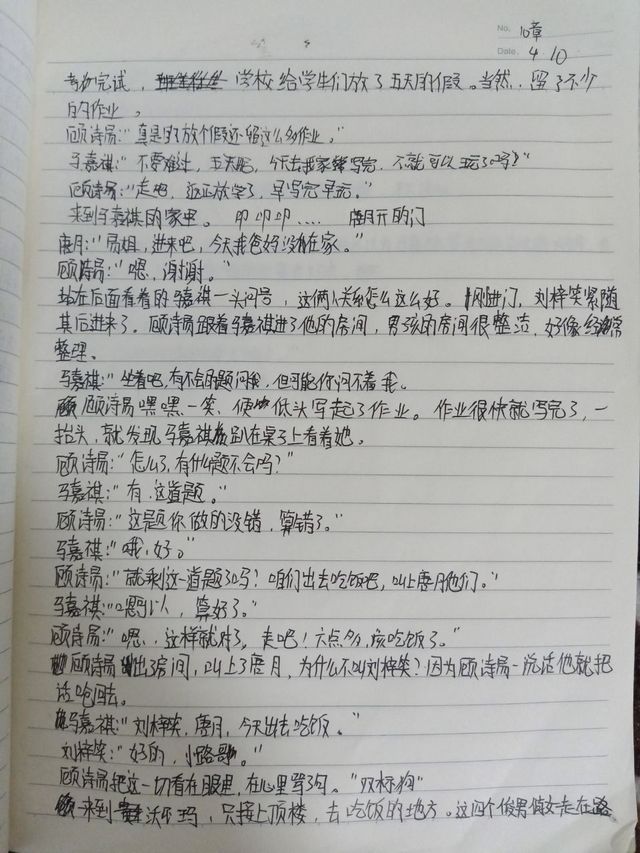 No. 10章
Date. 4.10
考完试，学校给学生们放了五天的假。当然，留了不少
的作业。
顾诗易:"真是的放个假还留这么多作业。"
马嘉祺:"不要难过，五天呢，今天去我家写完，不就可以玩了吗？"
顾诗易:"走吧，反正放学了，早写完早玩。"
来到马嘉祺的家里。叩叩叩.... 唐月开的门
唐月:"易姐，进来吧，今天我爸妈没在家。"
顾诗易:"嗯，谢谢。"
站在后面看着的马嘉祺一头问号，这俩人关系怎么这么好。刚进门，刘梓笑紧随
其后进来了。顾诗易跟着马嘉祺进了他的房间，男孩的房间很整洁，好像经常
整理。
马嘉祺:"坐着吧，有不会的题问我，但可能你问不着我。
顾诗易嘿嘿一笑，便低头写起了作业。作业很快就写完了，一
抬头，就发现马嘉祺趴在桌子上看着她。
顾诗易:"怎么了，有什么题不会吗？"
马嘉祺:"有，这道题。"
顾诗易:"这题你做的没错，算错了。"
马嘉祺:"哦，好。"
顾诗易:"就剩这一道题了吗？咱们出去吃饭吧，叫上唐月他们。"
马嘉祺:"可以，算好了。"
顾诗易:"嗯，这样就对了，走吧！六点多，该吃饭了。"
顾诗易出了房间，叫上了唐月，为什么不叫刘梓笑？因为顾诗易一说话他就把
话呛回去。
马嘉祺:"刘梓笑，唐月，今天出去吃饭。"
刘梓笑:"好的，小路哥。"
顾诗易把这一切看在眼里，在心里骂了句。"双标狗"
来到沃尔玛，只接上顶楼，去吃饭的地方。这四个俊男倩女走在路